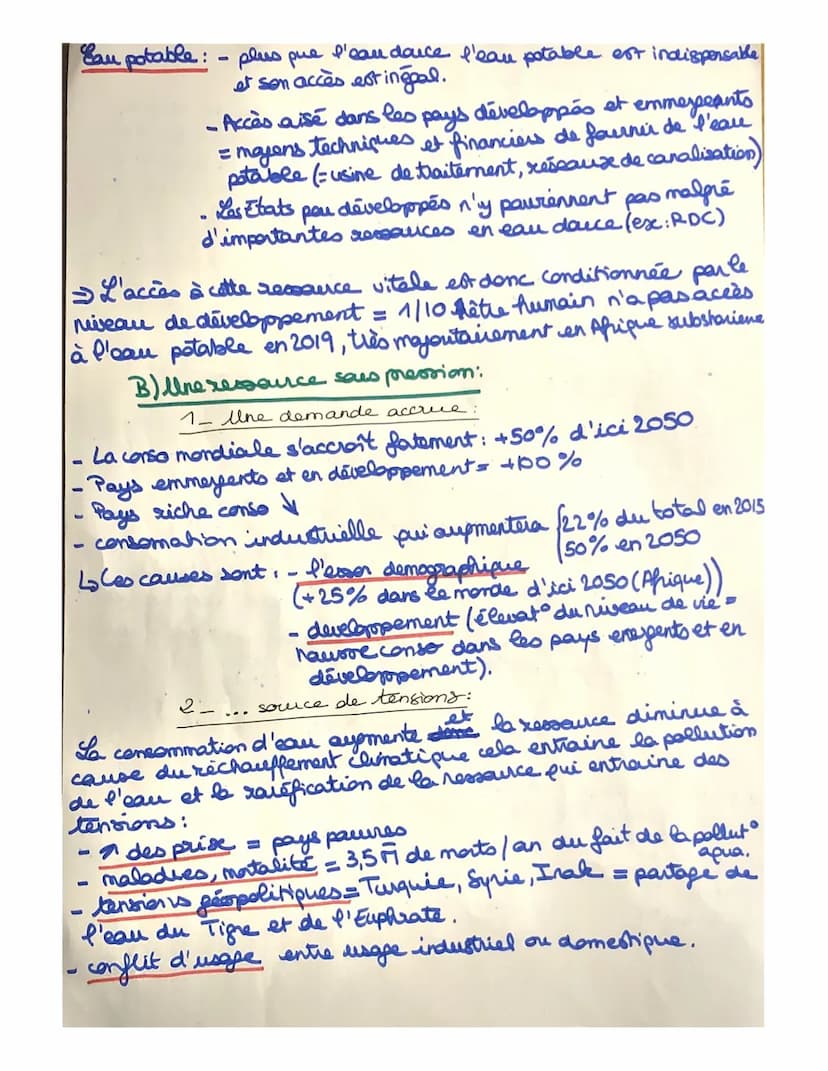 Eau potable : - plus que l'eau douce l'eau potable est indispensable
et son accès est inégal.
- Accès aisé dans les pays développés et emmergeants
= moyens techniques et financiers de fournir de l'eau
potable (= usine de traitement, réseaux de canalisation)
. Les États peu développés n'y parviennent pas malgré
d'importantes ressources en eau douce (ex : RDC)
=> L'accès à cette ressource vitale est donc conditionnée par le
niveau de développement = 1/10 être humain n'a pas accès
à l'eau potable en 2019, très majoritairement en Afrique substariene
B) Une ressource sous pression :
1 - Une demande accrue :
- La conso mondiale s'accroît fatement : +50% d'ici 2050
- Pays emmergents et en développement = +100 %
- Pays riche conso ↘
- consomation industrielle qui augmentera { 22% du total en 2015
50% en 2050
↳ Les causes sont : - l'essor demographique
(+25% dans le monde d'ici 2050 (Afrique))
- developpement (élevat° du niveau de vie =
hausse conso dans les pays emergents et en
développement).
2 - ... source de tensions :
La consommation d'eau augmente et la ressource diminue à
cause du réchauffement climatique cela entraine la pollution
de l'eau et la raréfication de la ressource qui entraine des
tensions :
- ↗ des prise = pays pauvres
- maladies, mortalité = 3,5 M de morts / an du fait de la pollut°
aqua.
- tensions géopolitiques = Turquie, Syrie, Irak = partage de
l'eau du Tigre et de l'Euphrate.
- conflit d'usage entre usage industriel ou domestique.